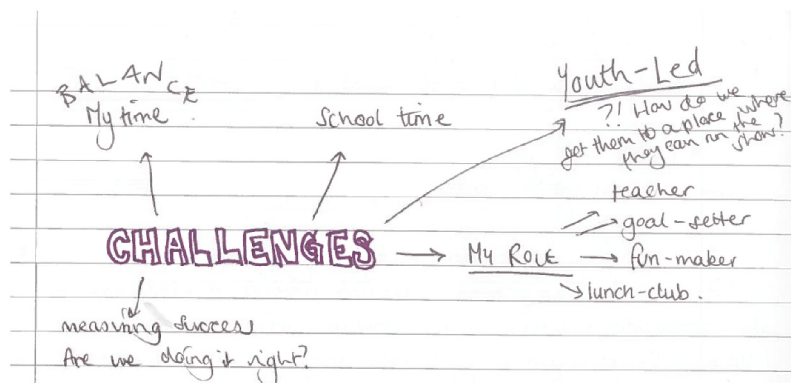 BALANCE
My time
School time
Youth-Led
?! How do we
get them to a place where
they can run the show?
CHALLENGES
My Role
teacher
goal-setter
fun-maker
lunch-club.
measuring success
Are we doing it right?